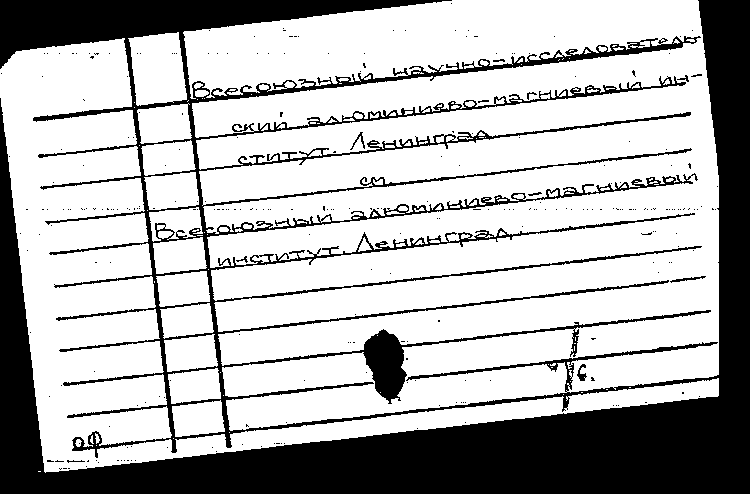 Всесоюзный научно-исследователь-
ский алюминиево-магниевый ин-
ститут. Ленинград
см.
Всесоюзный алюминиево-магниевый
институт. Ленинград.
оф